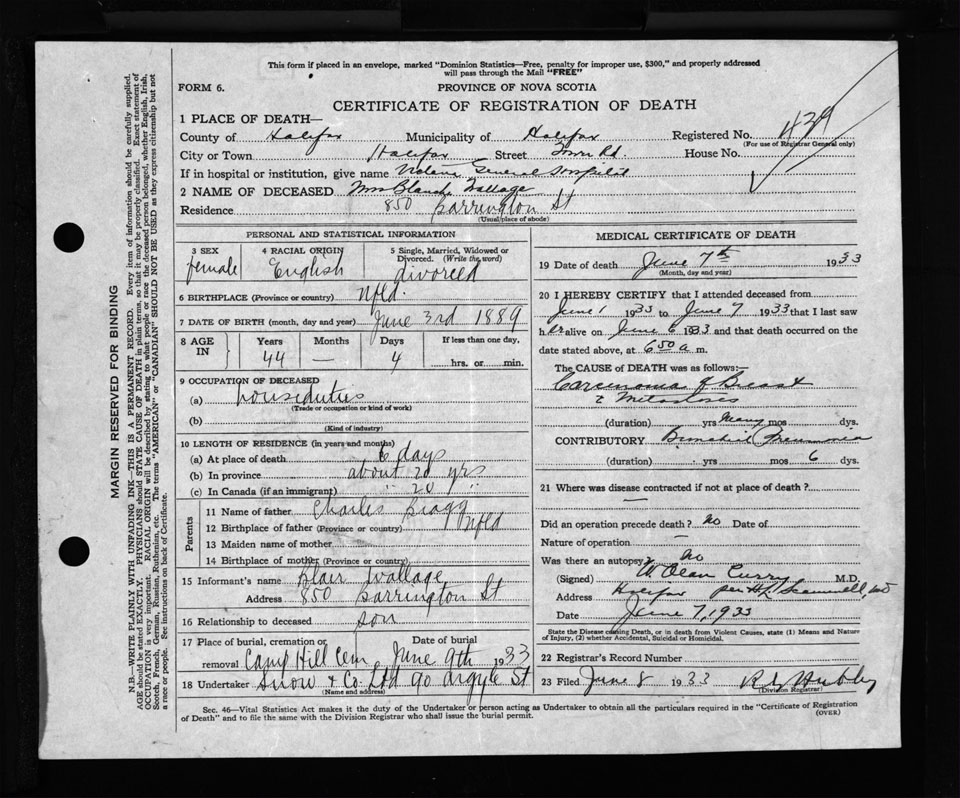 This form if placed in an envelope, marked "Dominion Statistics—Free, penalty for improper use, $300," and properly addressed
will pass through the Mail "FREE"
FORM 6.
PROVINCE OF NOVA SCOTIA
CERTIFICATE OF REGISTRATION OF DEATH
1 PLACE OF DEATH—
County of Halifax Municipality of Halifax Registered No. 429
(For use of Registrar General only)
City or Town Halifax Street Tower Rd. House No.
If in hospital or institution, give name Victoria General Hospital
2 NAME OF DECEASED Mrs Blanch Wallage
Residence 850 Barrington St
(Usual place of abode)
PERSONAL AND STATISTICAL INFORMATION
3 SEX 4 RACIAL ORIGIN 5 Single, Married, Widowed or
Divorced. (Write the word)
female English divorced
6 BIRTHPLACE (Province or country) Nfld.
7 DATE OF BIRTH (month, day and year) June 3rd 1889
8 AGE IN Years Months Days If less than one day,
44 — 4 hrs. or min.
9 OCCUPATION OF DECEASED
(a) houseduties
(Trade or occupation or kind of work)
(b)
(Kind of industry)
10 LENGTH OF RESIDENCE (in years and months)
(a) At place of death 6 days
(b) In province about 20 yrs
(c) In Canada (if an immigrant) " 20 "
Parents
11 Name of father Charles Bragg
12 Birthplace of father (Province or country) Nfld
13 Maiden name of mother
14 Birthplace of mother (Province or country)
15 Informant's name Blair Wallage
Address 850 Barrington St
16 Relationship to deceased son
17 Place of burial, cremation or Date of burial
removal Camp Hill Cem June 9th 1933
18 Undertaker Snow & Co. Ltd 90 Argyle St
(Name and address)
MEDICAL CERTIFICATE OF DEATH
19 Date of death June 7th 1933
(Month, day and year)
20 I HEREBY CERTIFY that I attended deceased from
June 1 1933 to June 7 1933 that I last saw
her alive on June 6 1933 and that death occurred on
date stated above, at 6 50 a m.
The CAUSE OF DEATH was as follows:—
Carcinoma of Breast
c Metastases
(duration) yrs many mos dys.
CONTRIBUTORY Bronchial Pneumonia
(duration) yrs mos 6 dys.
21 Where was disease contracted if not at place of death?
—
Did an operation precede death? no Date of
Nature of operation —
Was there an autopsy? no
(Signed) W. Alan Curry M.D.
Address Halifax per
Date June 7, 1933
State the Disease causing Death, or in death from Violent Causes, state (1) Means and Nature
of Injury, (2) whether Accidental, Suicidal or Homicidal.
22 Registrar's Record Number
23 Filed June 8 1933
(Division Registrar)
Sec. 46—Vital Statistics Act makes it the duty of the Undertaker or person acting as Undertaker to obtain all the particulars required in the "Certificate of Registration
of Death" and to file the same with the Division Registrar who shall issue the burial permit.
(OVER)
MARGIN RESERVED FOR BINDING
N.B.—WRITE PLAINLY WITH UNFADING INK—THIS IS A PERMANENT RECORD. Every item of information should be carefully supplied.
AGE should be stated EXACTLY. PHYSICIANS should STATE CAUSE OF DEATH in plain terms, so that it may be properly classified. Exact statement of
OCCUPATION is very important. RACIAL ORIGIN will be described by stating to what people or race the deceased person belonged, whether English, Irish,
Scotch, French, German, Russian, Ruthenian, etc. The terms "AMERICAN" or "CANADIAN" SHOULD NOT BE USED as they express citizenship but not
a race or people. See instructions on back of Certificate.